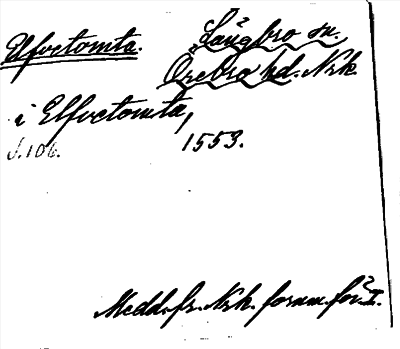 Elfvetomta. Långbro sn.,
Örebro hd. Nrk.
i Elfvetomta,
S. 106. 1553.
Medd. fr. Nrk. fornm. för. I.